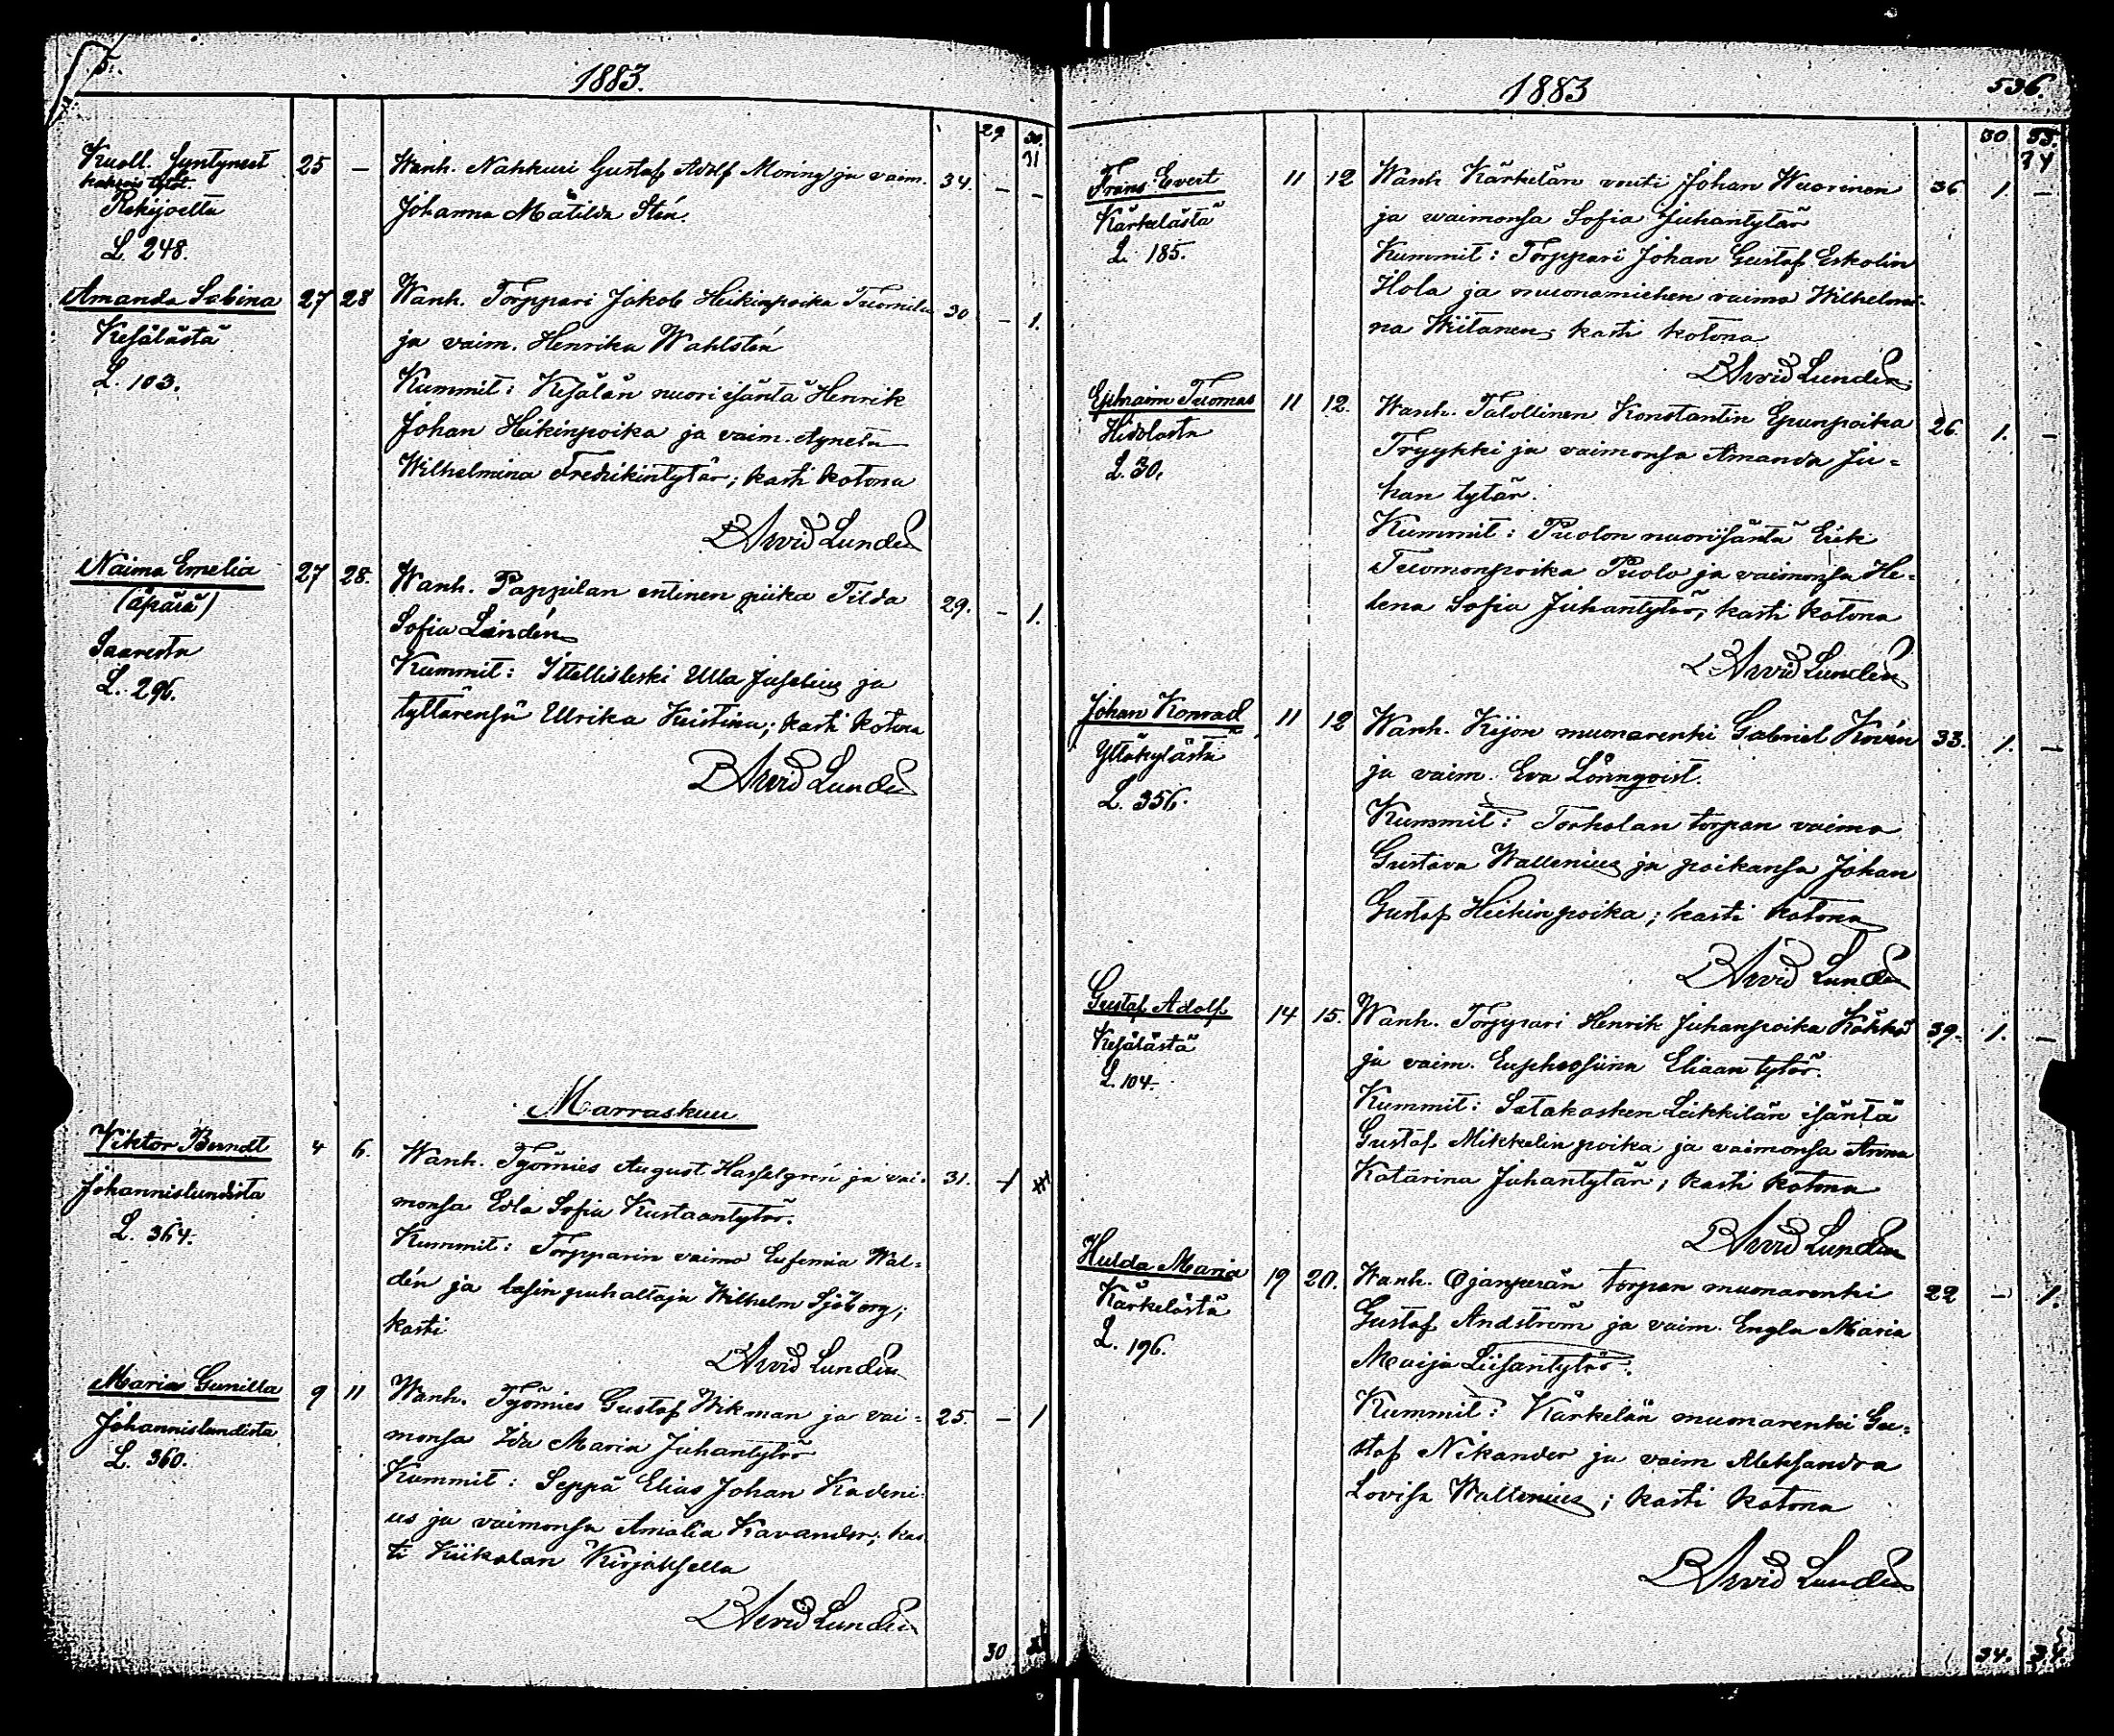 1883.
29 30.
31
Kuoll. syntyneet 25 — Wanh. Nahkuri Gustaf Adolf Moring ja vaim. 34. — —
kaksois tytöt.
Rekijoelta Johanna Matilda Stén.
L. 248.
Amanda Sabina 27 28 Wanh. Torppari Jakob Heikinpoika Tuomila 30 — 1.
Kesälästä ja vaim. Henrika Wahlstén
L. 103. Kummit: Kesälän nuori isäntä Henrik
Johan Heikinpoika ja vaim. Agneta
Wilhelmina Fredrikintytär; kasti kotona
Arvid Lundén
Naima Emelia 27 28. Wanh. Pappilan entinen piika Tilda 29. — 1.
(äpärä) Sofia Lindén
Saaresta Kummit: Itellisleski Ulla Juselius ja
L. 296. tyttärensä Ullrika Kristina; kasti kotona
Arvid Lundén
Marraskuu
Viktor Berndt 4 6. Wanh. Työmies August Hasselgren ja vai- 31.
Johannislundista monsa Edla Sofia Kustaantytär.
L. 364. Kummit: Torpparin vaimo Eufemia Wal-
dén ja lasinpuhaltaja Wilhelm Sjöberg;
kasti
Arvid Lundén
Maria Gunilla 9 11 Wanh. Työmies Gustaf Wikman ja vai- 25. — 1
Johannislundista monsa Ida Maria Juhantytär
L. 360. Kummit: Seppä Elias Johan Kadeni-
us ja vaimonsa Amalia Kavander; kas-
ti Kiikalan Kirjaksella
Arvid Lundén
30
1883 536.
30 33.
34
Frans Evert 11 12 Wanh Kärkelän vouti Johan Wuorinen 36 1. —
Kärkelästä ja vaimonsa Sofia Juhantytär
L. 185. Kummit: Torppari Johan Gustaf Eskolin
Hola ja muonamiehen vaimo Wilhelmi-
na Wiitanen; kasti kotona
Arvid Lundén
Ephraim Tuomas 11 12. Wanh. Talollinen Konstantin Epunpoika 26. 1. —
Hidolasta Tryykki ja vaimonsa Amanda Ju-
L. 30. han tytär.
Kummit: Puolon nuorisäntä Erik
Tuomonpoika Puolo ja vaimonsa He-
lena Sofia Juhantytär; kasti kotona
Arvid Lundén
Johan Konrad 11 12 Wanh. Kijon muonarenki Gabriel Korén 33. 1. —
Yltäkylästä ja vaim. Eva Lönnqvist.
L. 356. Kummit: Torkolan torpan vaimo
Gustava Wallenius ja poikansa Johan
Gustaf Heikinpoika; kasti kotona
Arvid Lundén
Gustaf Adolf 14 15. Wanh. Torppari Henrik Juhanpoika Kökkö 39. 1. —
Kesälästä ja vaim. Euphrosiina Eliaan tytär.
L. 104. Kummit: Satakosken Leikkilän isäntä
Gustaf Mikkelin poika ja vaimonsa Anna
Katarina Juhantytär; kasti kotona
Arvid Lundén
Hulda Maria 19 20. Wanh. Ojanperän torpan muonarenki 22 — 1.
Kärkelästä Gustaf Andström ja vaim. Engla Maria
L. 196. Maija Liisantytär.
Kummit: Kärkelän muonarenki Gu-
staf Nikander ja vaim Aleksandra
Lovisa Wallenius; kasti kotona
Arvid Lundén
34.